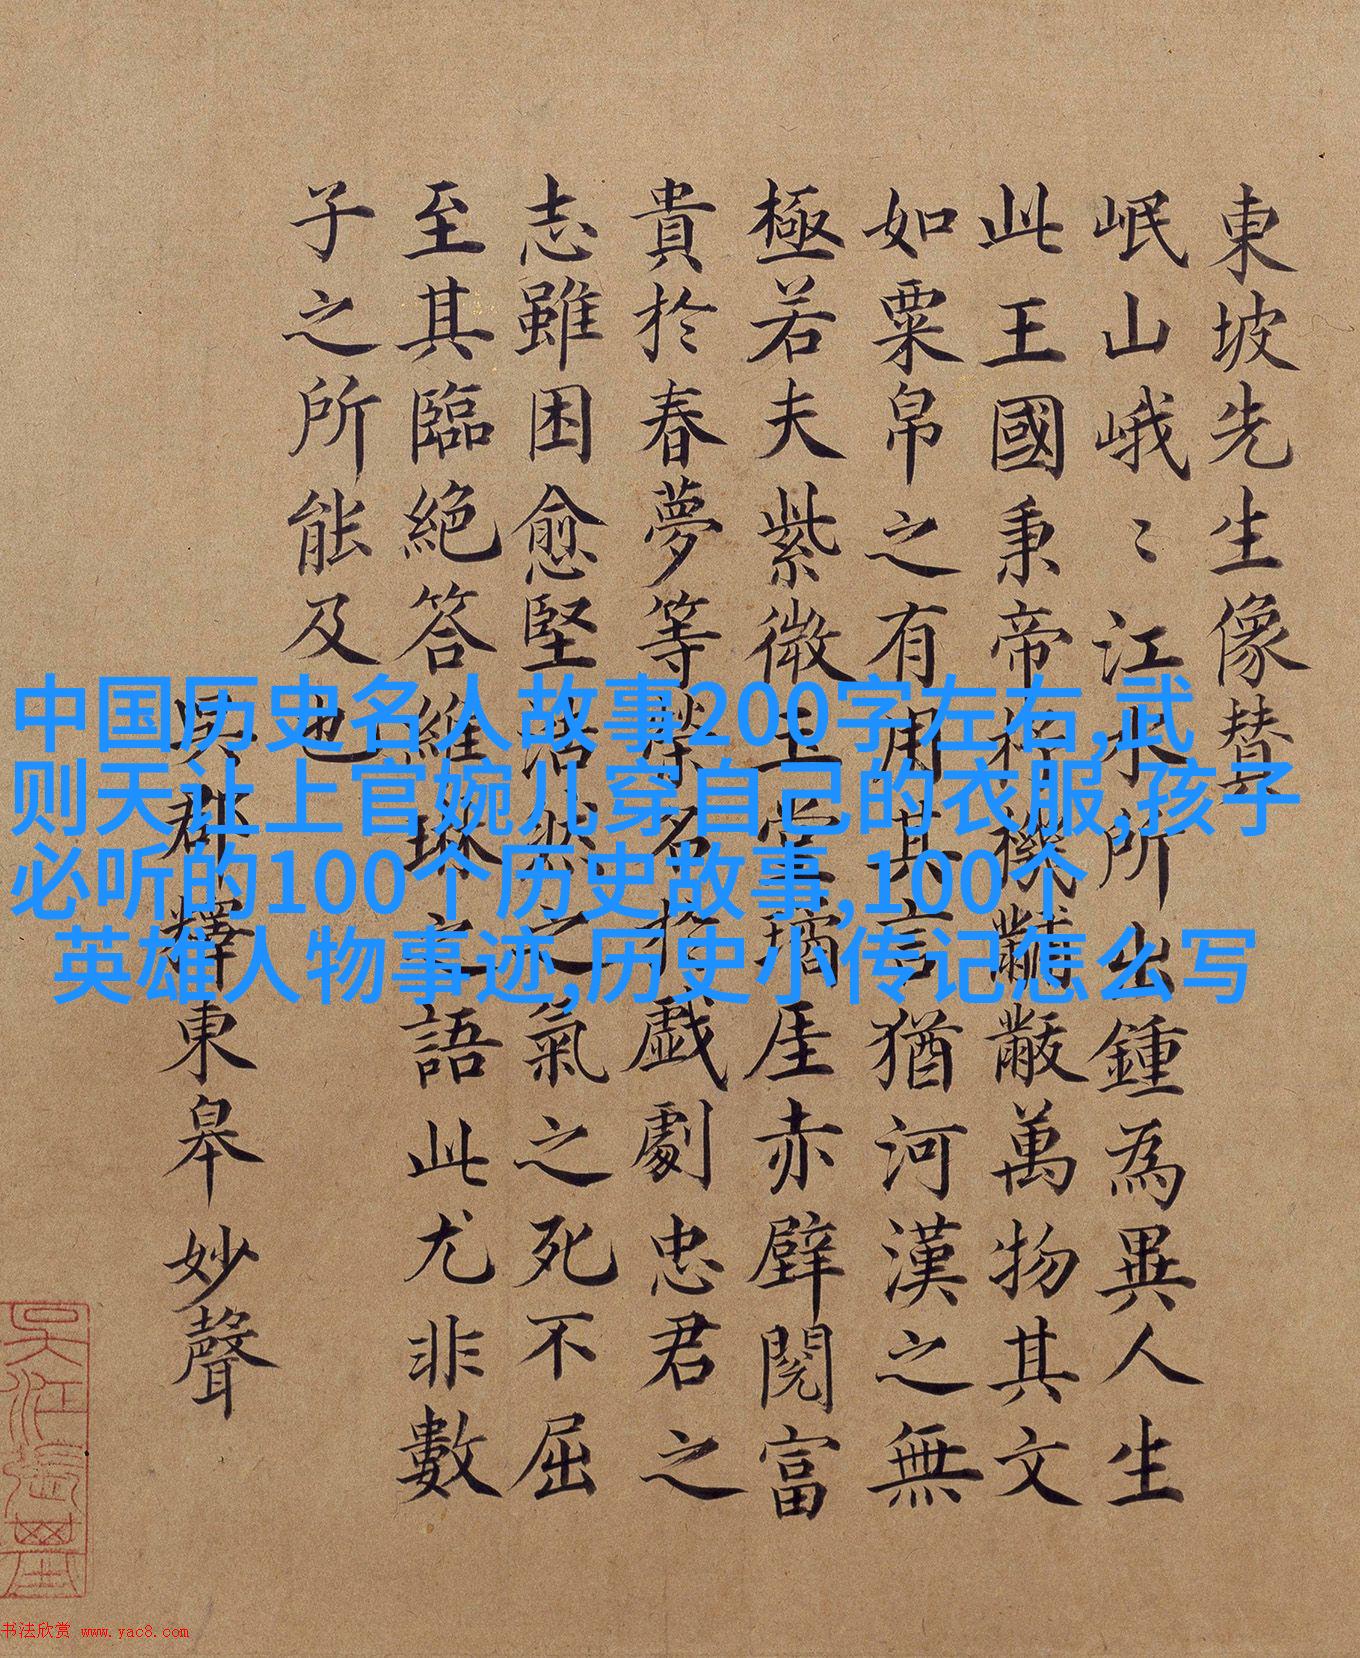 東坡先生像
岷山峨〻江水所出鍾為異人生
此王國秉帝杼機黼黻萬物其文
如粟帛之有用其言猶河漢之無
極若夫紫微玉堂瓊厓赤壁閱富
貴於春夢等榮名於戯劇忠君之
志雖困愈堅浩然之氣之死不屈
至其臨絕答維琳之語此尤非數
子之所能及也
吳郡釋東皋妙聲
中国历史名人故事200字左右,武
则天让上官婉儿穿自己的衣服,孩子
必听的100个历史故事,100个
英雄人物事迹,历史小传记怎么写
书法欣赏 www.yac8.com